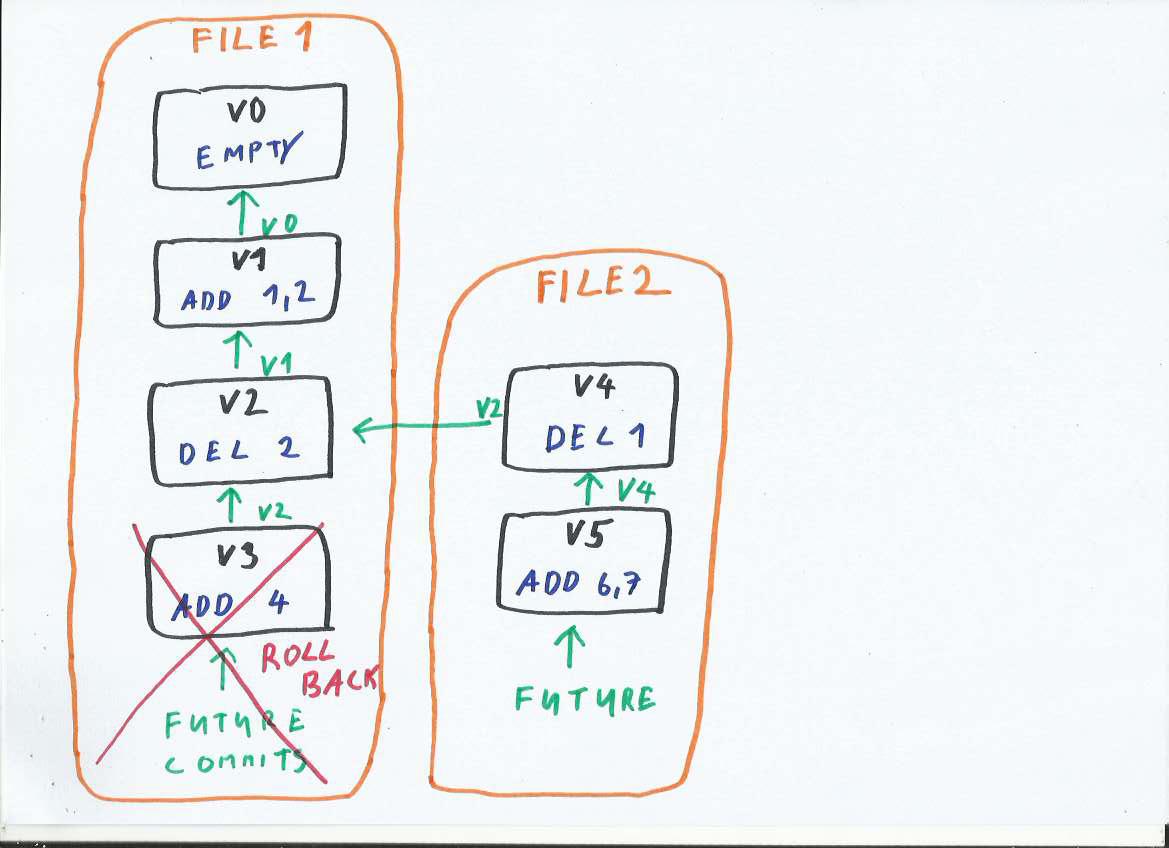 FILE 1
V0
EMPTY
V0
V1
ADD 1,2
V1
V2
DEL 2
V2
V3
ADD 4
ROLL
BACK
FUTURE
COMMITS
FILE 2
V2
V4
DEL 1
V4
V5
ADD 6,7
FUTURE